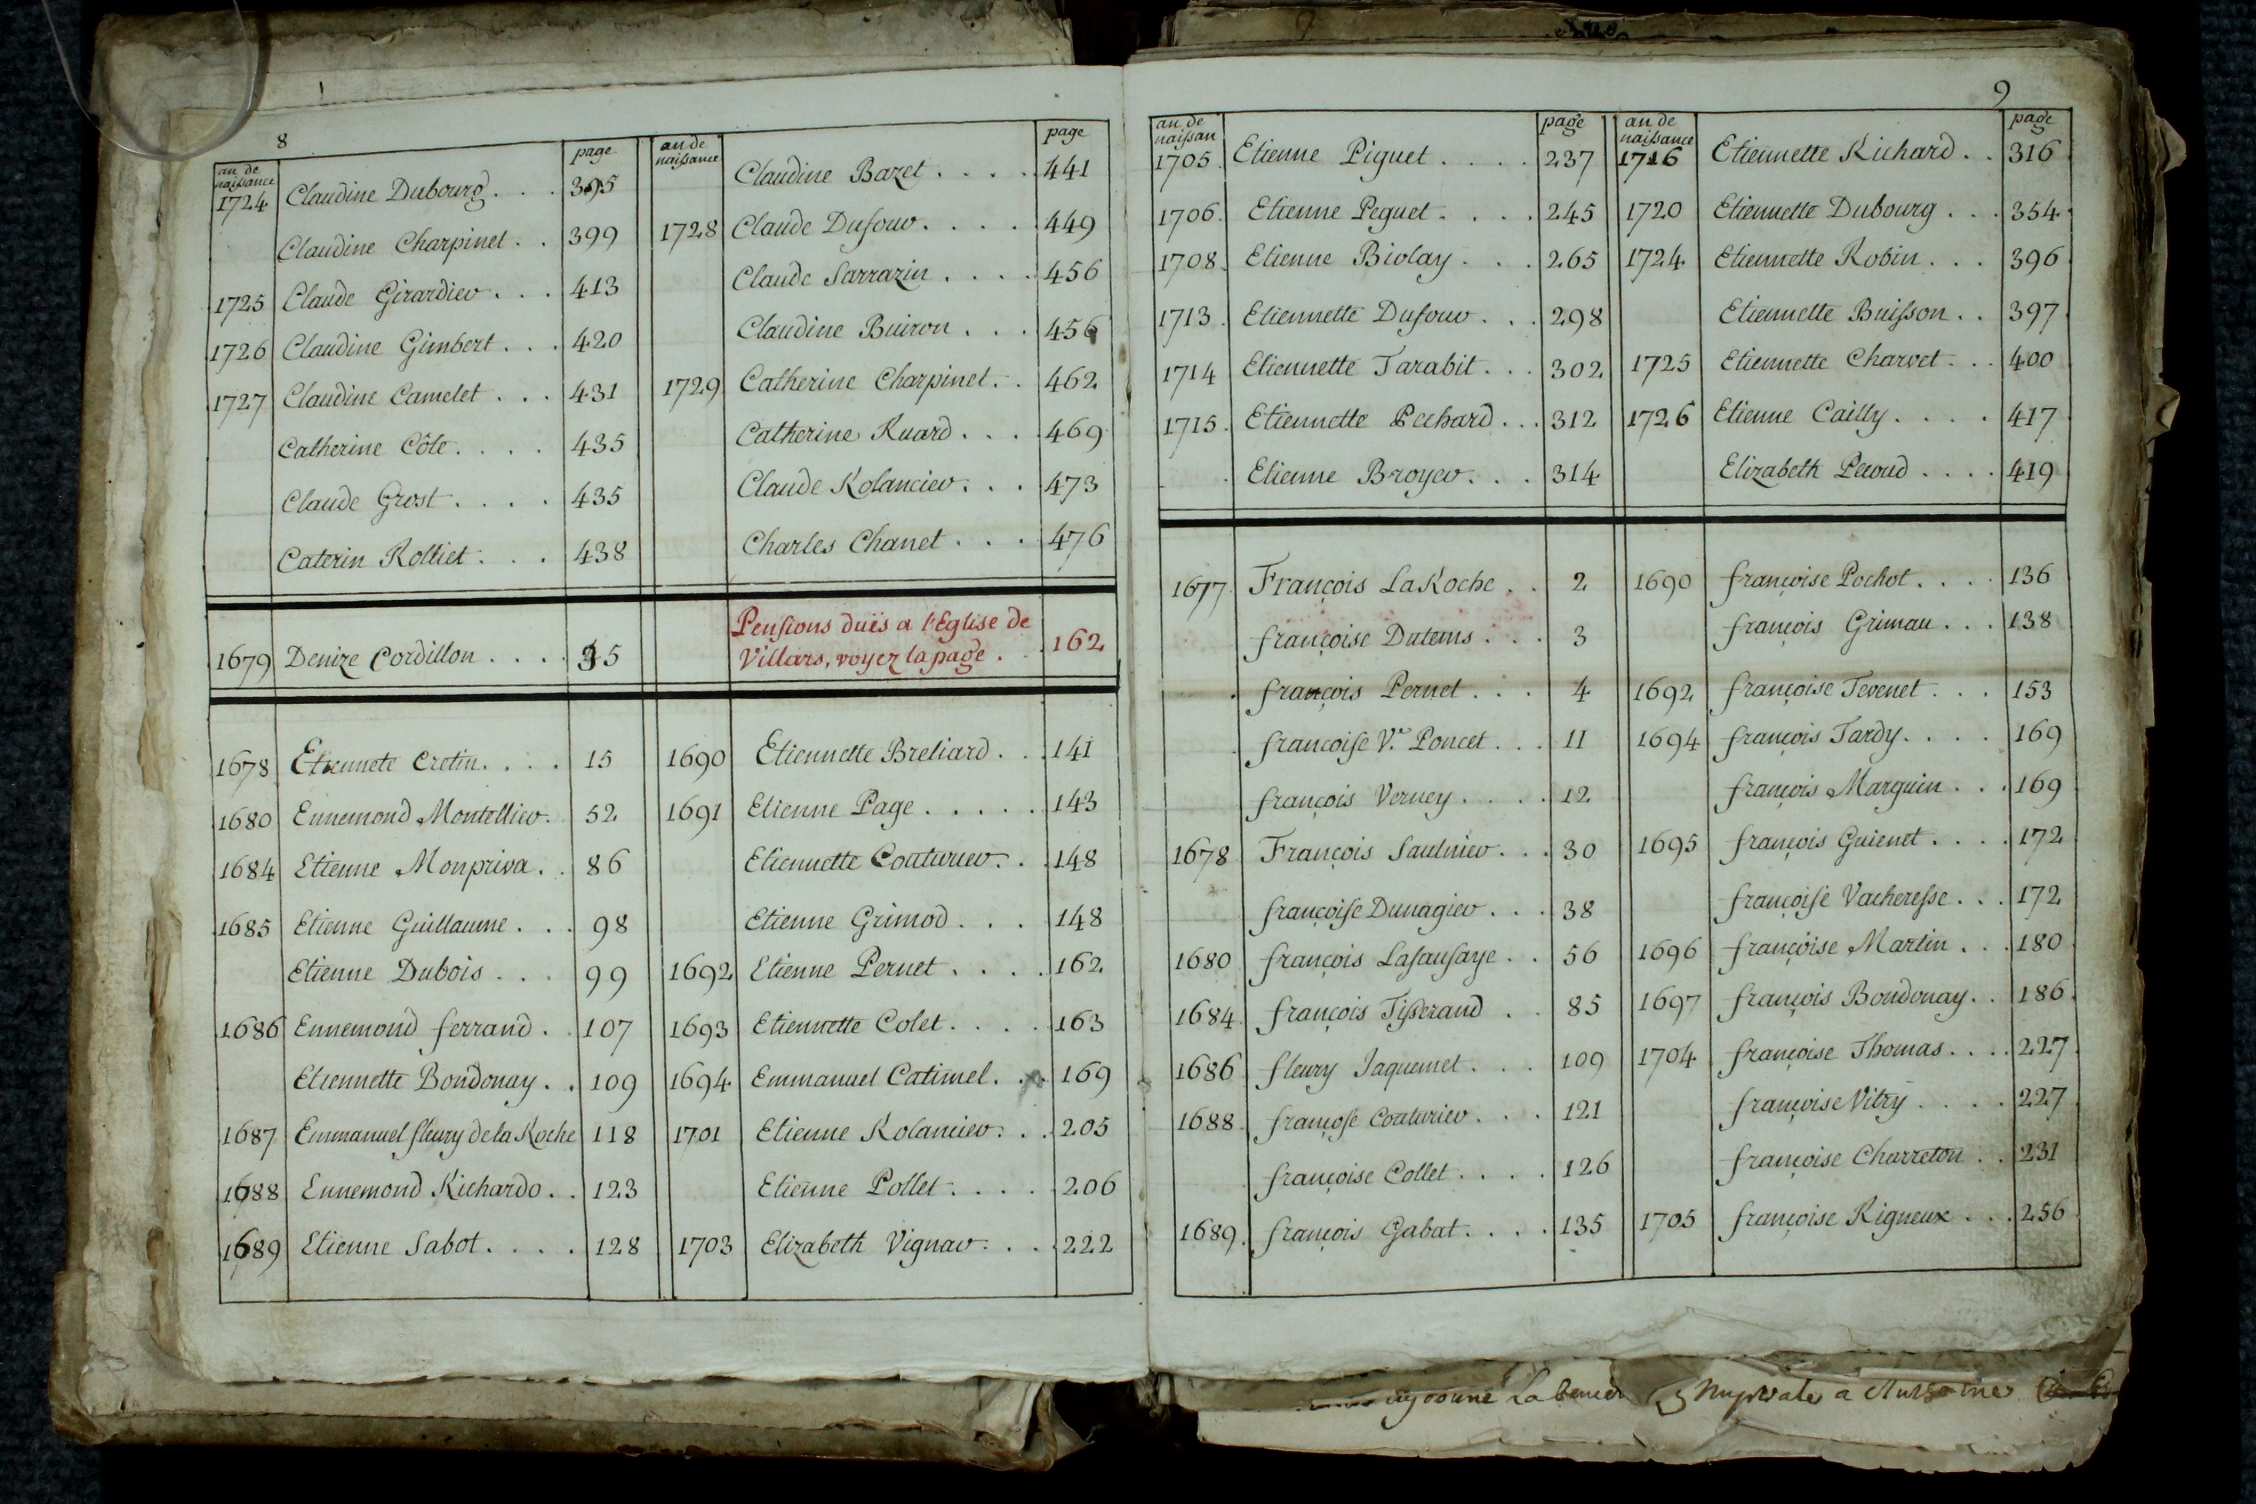 8
an de naissance
page
1724 Claudine Dubourg . . . 395
Claudine Charpinet . . 399
1725 Claude Girardier . . . 413
1726 Claudine Gimbert . . . 420
1727 Claudine Camelet . . . 431
Catherine Côte . . . . 435
Claude Grost . . . . 435
Caterin Rolliet . . . 438
1679 Denize Cordillon . . . . 35
1678 Etiennete Cretin . . . . 15
1680 Ennemond Montellier . 52
1684 Etienne Monpriva . . 86
1685 Etienne Guillaume . . . 98
Etienne Dubois . . . 99
1686 Ennemond ferrand . . 107
Etiennette Bondonay . . 109
1687 Emmanuel fleury de la Roche 118
1688 Ennemond Richardo . . 123
1689 Etienne Sabot . . . . 128
an de naissance
page
Claudine Bazet . . . . 441
1728 Claude Dufour . . . . . 449
Claude Sarrazin . . . . 456
Claudine Buiron . . . 456
1729 Catherine Charpinet . . 462
Catherine Ruard . . . . 469
Claude Rolancier . . . 473
Charles Chanet . . . . 476
Pensions duës a l'Eglise de
Villars, voyez la page . . 162
1690 Etiennette Breliard . . . 141
1691 Etienne Page . . . . . 143
Etiennette Couturier . . . 148
Etienne Grimod . . . 148
1692 Etienne Pernet . . . . 162
1693 Etiennette Colet . . . . 163
1694 Emmanuel Catimel . . . 169
1701 Etienne Rolancier . . . 205
Etienne Pollet . . . . 206
1703 Elizabeth Vignar . . . 222
9
an de naissan
page
1705. Etienne Piguet . . . . 237
1706. Etienne Peguet . . . . 245
1708. Etienne Biolay . . . 265
1713. Etiennette Dufour . . . 298
1714 Etiennette Tarabit . . . 302
1715. Etiennette Pechard . . . 312
Etienne Broyer . . . 314
1677 François La Roche . . 2
françoise Dutems . . . 3
françois Pernet . . . 4
francoise V.e Poncet . . . 11
françois Verney . . . . 12
1678 François Saulnier . . . 30
françoise Dunagier . . . 38
1680 françois Lasausaye . . 56
1684 françois Tisserand . . 85
1686 fleury Jaquemet . . . 109
1688. françose Couturier . . . 121
françoise Collet . . . . 126
1689. françois Gabat . . . . 135
an de naissance
page
1716 Etiennette Richard . . 316
1720 Etiennette Dubourg . . . 354
1724 Etiennette Robin . . . 396
Etiennette Buisson . . 397
1725 Etiennette Charvet . . . 400
1726 Etienne Cailly . . . . 417
Elizabeth Peroud . . . . 419
1690 françoise Pochot . . . . 136
françois Grimau . . . 138
1692 françoise Tevenet . . . 153
1694 françois Tardy . . . . 169
françois Marguin . . . 169
1695 françois Guienet . . . . 172
françoise Vacheresse . . . 172
1696 françoise Martin . . . 180
1697 françois Bondonay . . 186
1704 françoise Thomas . . . . 227
françoise Vitry . . . . 227
françoise Charreton . . 231
1705 françoise Rigneux . . . 256